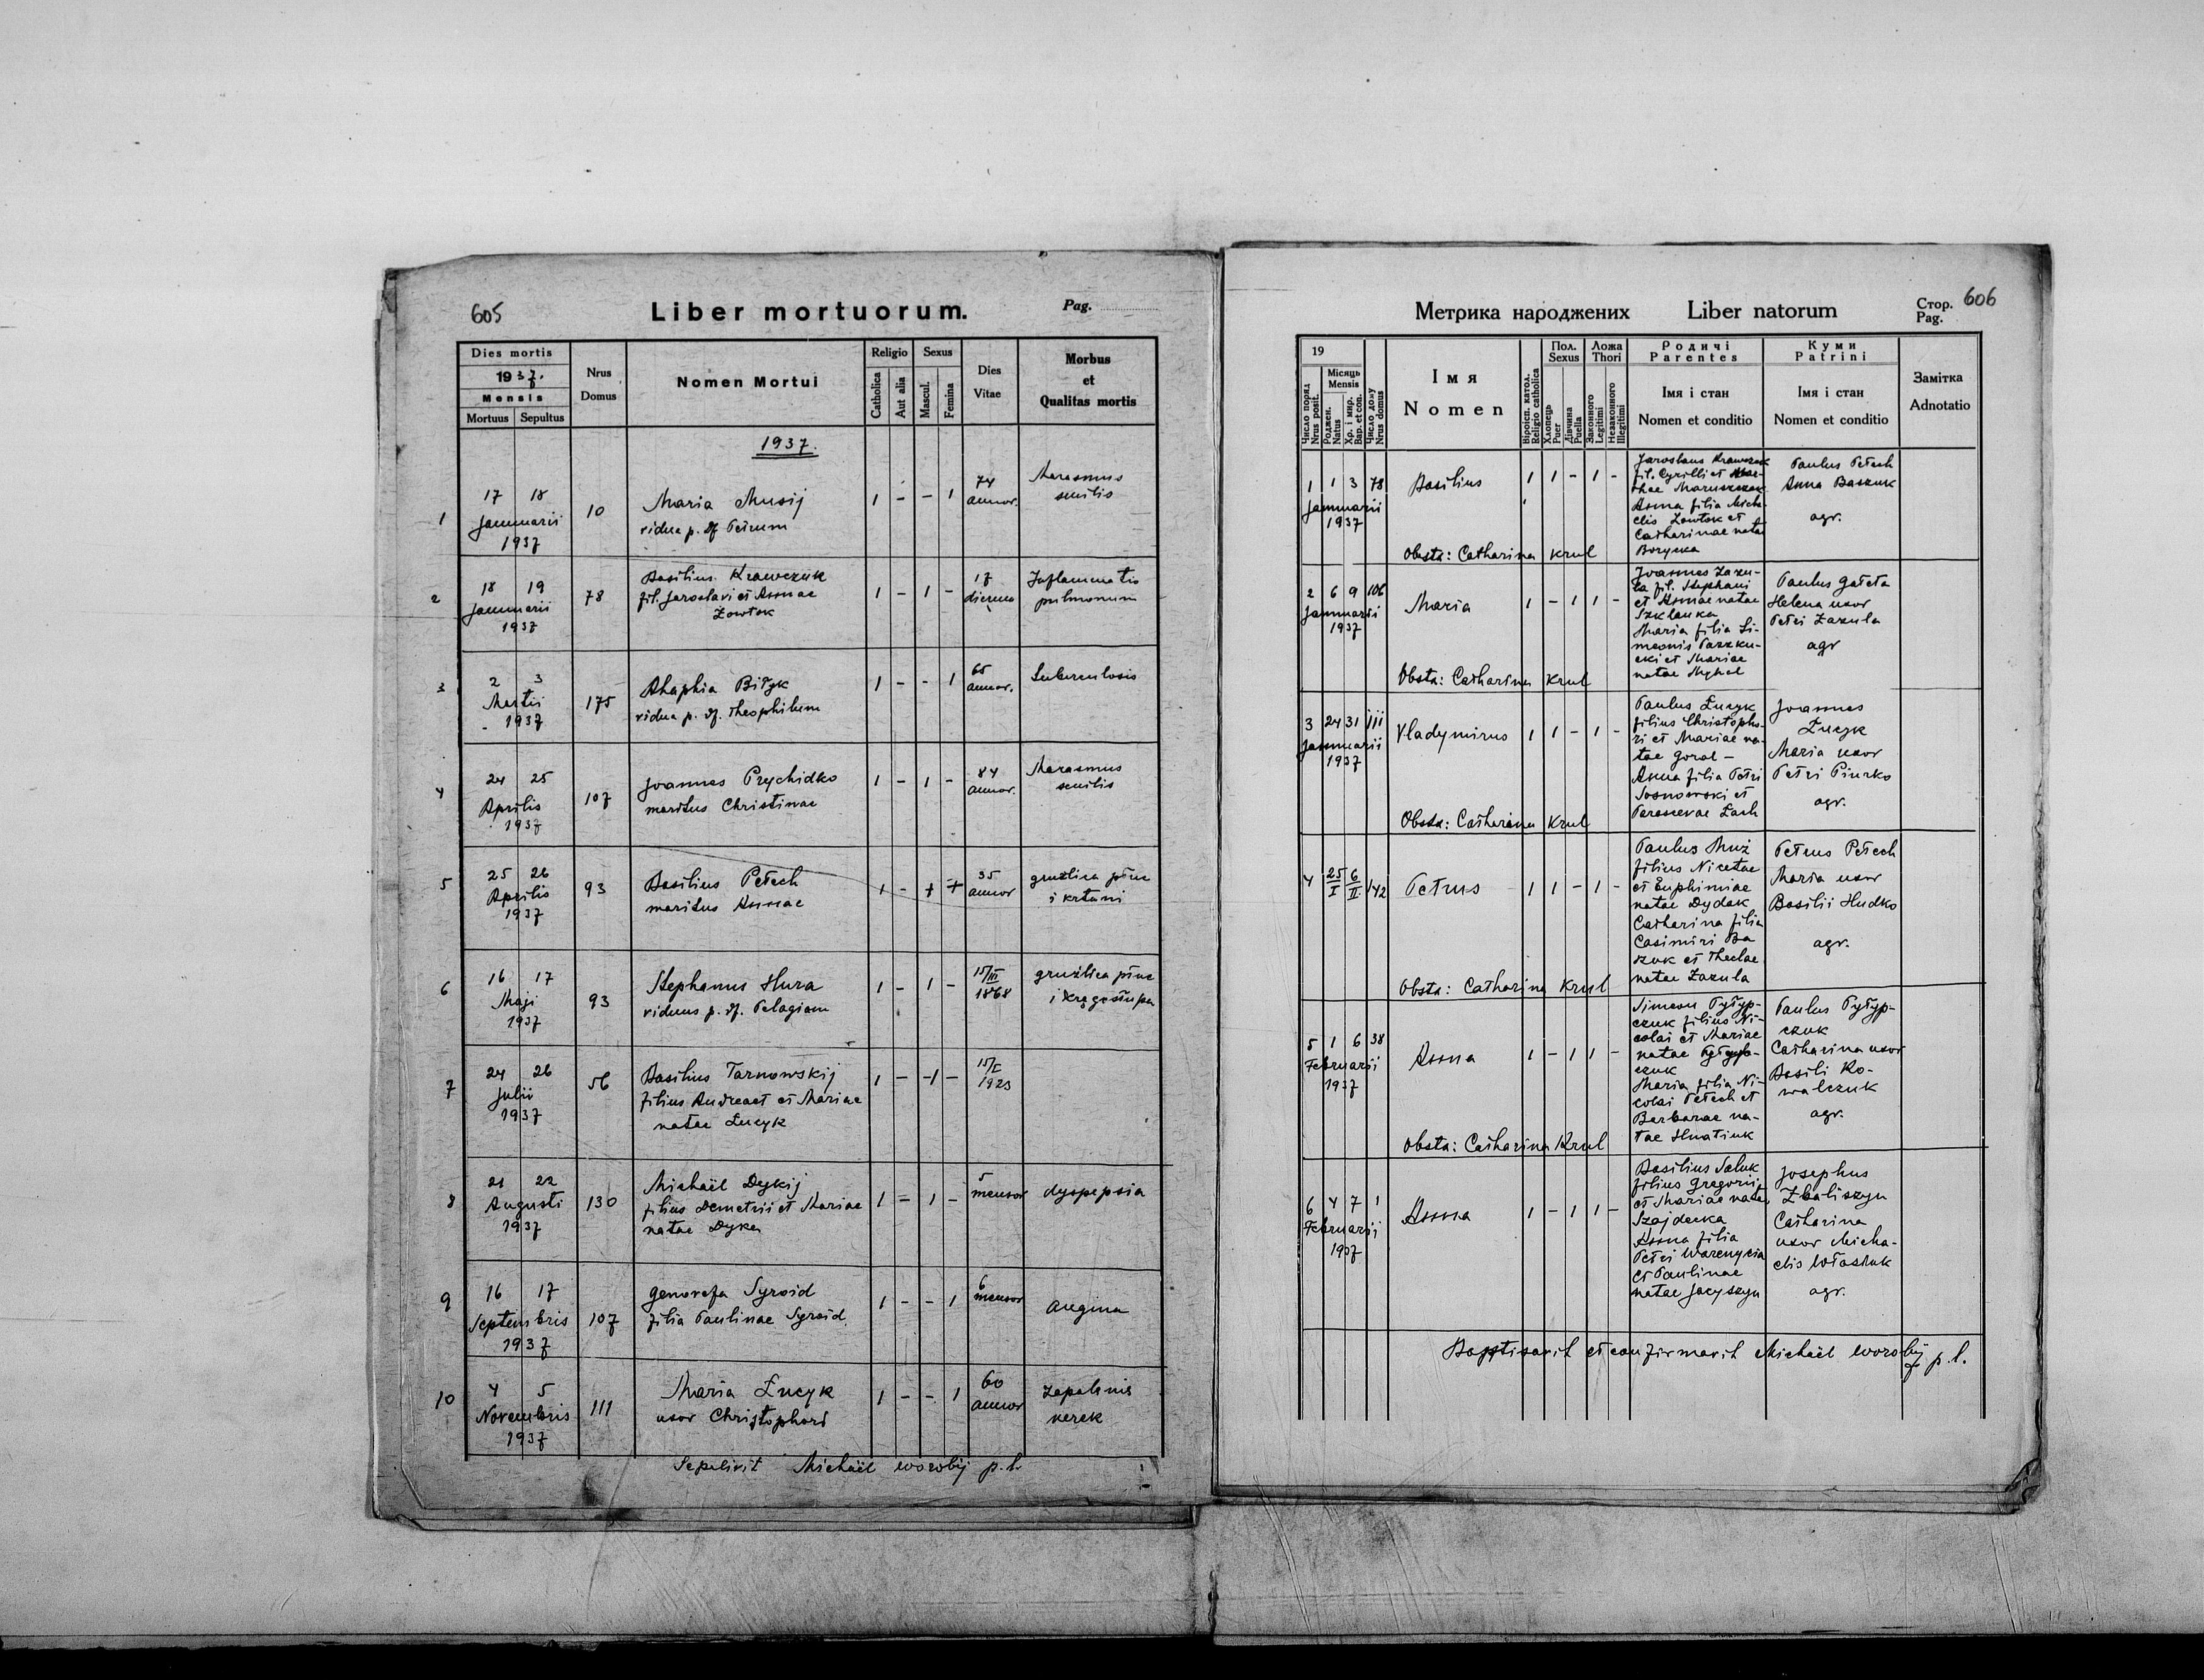 605
Liber mortuorum.
Pag.
Dies mortis
1937.
Mensis
Mortuus Sepultus
Nrus Domus
Nomen Mortui
Religio
Catholica
Aut alia
Sexus
Mascul.
Femina
Dies Vitae
Morbus
et
Qualitas mortis
1937.
1 17 18 Januarii 1937 10 Maria Musij 1 - - 1 74 annor. Marasmus senilis
vidua p. df Petrum
2 18 19 Januarii 1937 78 Basilius Krawczuk 1 - 1 - 17 dierum Inflammatio pulmonum
fil. Jaroslavi et Annae
Zowtok
3 2 3 Martii 1937 175 Rhaphia Biłyk 1 - - 1 65 annor. Tuberculosis
vidua p. df. Theophilum
4 24 25 Aprilis 1937 107 Joannes Prychidko 1 - 1 - 84 annor. Marasmus senilis
maritus Christinae
5 25 26 Aprilis 1937 93 Basilius Petech 1 - + + 35 annor gruźlica płuc i krtani
maritus Annae
6 16 17 Maji 1937 93 Stephanus Hura 1 - 1 - 15/III 1868 gruźlica płuc i kręgosłupa
viduus p. df. Pelagiam
7 24 26 Julii 1937 56 Basilius Tarnowskij 1 - 1 - 15/I 1923
filius Andreae et Mariae
natae Łucyk
8 21 22 Augusti 1937 130 Michaël Dykij 1 - 1 - 5 mensor dyspepsia
filius Demetrii et Mariae
natae Dyka
9 16 17 Septembris 1937 107 Genovefa Syroid 1 - - 1 6 mensor angina
filia Paulinae Syroid.
10 4 5 Novembris 1937 111 Maria Łucyk 1 - - 1 60 annor zapalenie nerek
uxor Christophori
Sepelivit Michaël Worobij p. l.
Метрика народжених Liber natorum
Стор.
Pag. 606
19
Число поряд
Nrus posit.
Місяць
Mensis
Роджен.
Natus
Хр. і мир.
Bap. et con.
Число дому
Nrus domus
Імя
Nomen
Віроісп. катол.
Religio catholica
Пол.
Sexus
Хлопець
Puer
Дівчина
Puella
Ложа
Thori
Законного
Legitimi
Незаконного
Illegitimi
Родичі
Parentes
Імя і стан
Nomen et conditio
Куми
Patrini
Імя і стан
Nomen et conditio
Замітка
Adnotatio
1 1 3 78 Januarii 1937 Basilius 1 1 - 1 -
Jaroslaus Krawczuk
fil. Cyrilli et
Anna filia Micha-
elis Zowtok et
Catharinae natae
Boryska
Paulus Petech
Anna Baszuk
agr.
Obsta: Catharina Krul
2 6 9 106 Januarii 1937 Maria 1 - 1 1 -
Joannes Zazu-
la fil. Stephani
et Annae natae
Szklanka
Maria filia Si-
meonis
et Mariae
natae
Paulus Gałeta
Helena uxor
Petri Zazula
agr
Obsta: Catharina Krul
3 24 31 111 Januarii 1937 Vladymirus 1 1 - 1 -
Paulus Łucyk
filius Christopho-
ri et Mariae na-
tae Goral -
Anna filia Petri
Sosnowski et
Parascevae Łach
Joannes
Łucyk
Maria uxor
Petri Piurko
agr.
Obsta: Catharina Krul
4 25/I 6/II 142 Petrus 1 1 - 1 -
Paulus Muż
filius Nicetae
et Euphimiae
natae Dydak
Catharina filia
Casimiri Ba
szuk et Theclae
natae Zazula
Petrus Petech
Maria uxor
Basilii Hudko
agr.
Obsta: Catharina Krul
5 1 6 38 Februarii 1937 Anna 1 - 1 1 -
Simeon Pyłyp-
czuk filius Ni-
colai et Mariae
natae Pyłyp-
czuk
Maria filia Ni-
colai Petech et
Barbarae na-
tae Hnatiuk
Paulus Pyłyp-
czuk
Catharina uxor
Basili Ko-
walczuk
agr.
Obsta: Catharina Krul
6 4 7 1 Februarii 1937 Anna 1 - 1 1 -
Basilius Saluk
filius Gregorii
et Mariae natae
Szajdecka
Anna filia
Petri Warenycia
et Paulinae
natae Jacyszyn
Josephus
Zbaliszyn
Catharina
uxor Micha-
elis Własiuk
agr.
Baptisavit et confirmavit Michaël Worobij p. l.